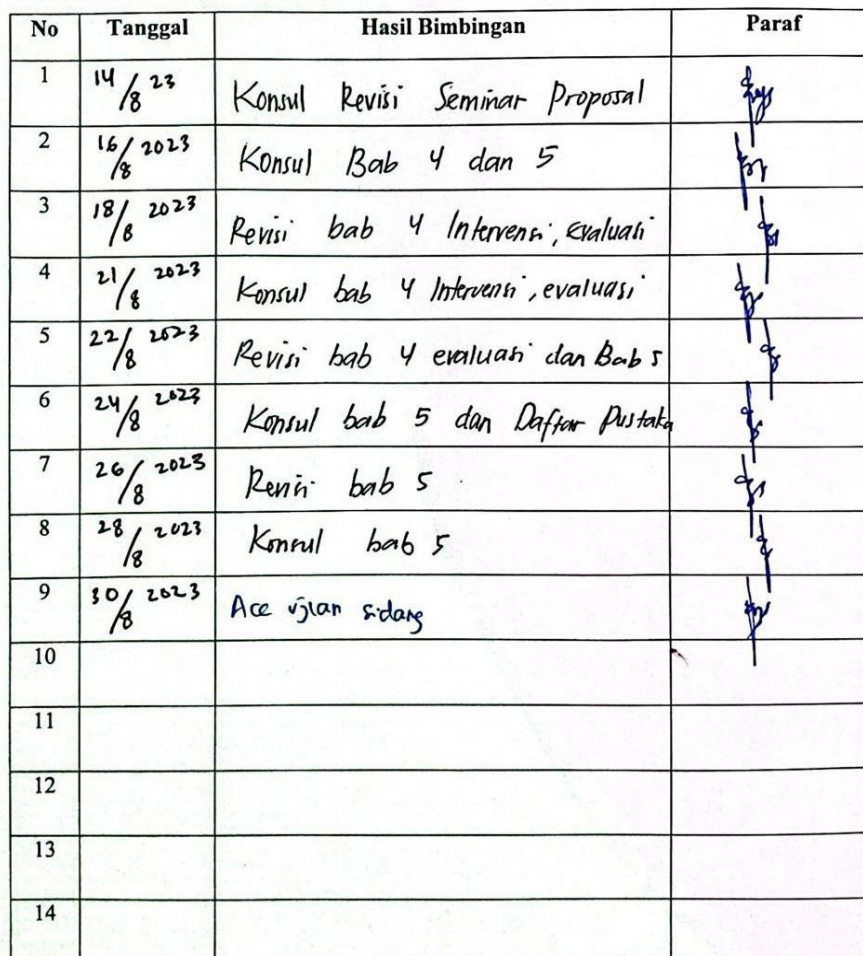 No Tanggal Hasil Bimbingan Paraf
1 14/8 23 Konsul Revisi Seminar Proposal
2 16/8 2023 Konsul Bab 4 dan 5
3 18/8 2023 Revisi bab 4 Intervensi, evaluasi
4 21/8 2023 Konsul bab 4 Intervensi, evaluasi
5 22/8 2023 Revisi bab 4 evaluasi dan Bab 5
6 24/8 2023 Konsul bab 5 dan Daftar Pustaka
7 26/8 2023 Revisi bab 5
8 28/8 2023 Konsul bab 5
9 30/8 2023 Acc ujian sidang
10
11
12
13
14